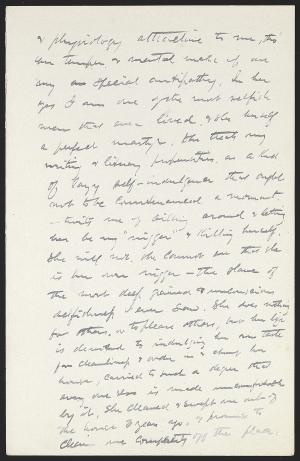 & physiology attractive to me, tho'
her temper, & mental make of one
any special antipathy. In her
eyes I am one of the most selfish
men that ever lived, & she herself
a perfect martyr. She treats my
writing & literary propensities as a kind
of lazy self-indulgence that ought
not to be countenanced a moment.
twits me of sitting around & letting
her be my "nigger" & killing herself.
She will not, she cannot see that she
is her own nigger — the slave of
the most deep grained & unconscious
selfishness I ever saw. She does nothing
for others, or to please others, but her life
is devoted to indulging her own taste
for cleanliness & order in & about her
house, carried to such a degree that
every one else is made uncomfortable
by it. She cleaned & swept me out of
the house 8 years ago, & promises to
clean me completely off the place.